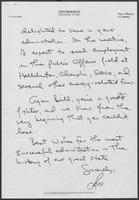 delighted to serve in your
administration. In the meantime
I expect to seek employment
in the Public Affairs field at
Halliburton, Champlin, Saxco, and
several other energy-related firms.
Again Bill, you're a great
fighter, and we knew from the
very beginning that you couldn't
lose!
Best Wishes for the most
successful administration in the
history of our great state.
Sincerely,